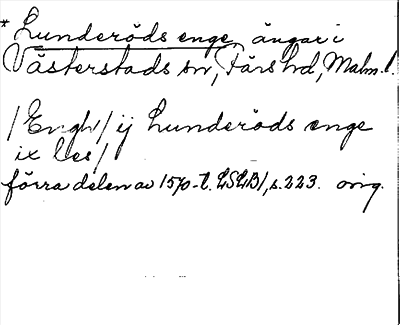 * Lunderöds enge, ängar i
Västerstads sn, Färs hd, Malm. l.
/Engh/ ij Lunderöds enge
ix les/
förra delen av 1570-t. LSLB1, s. 223. orig.